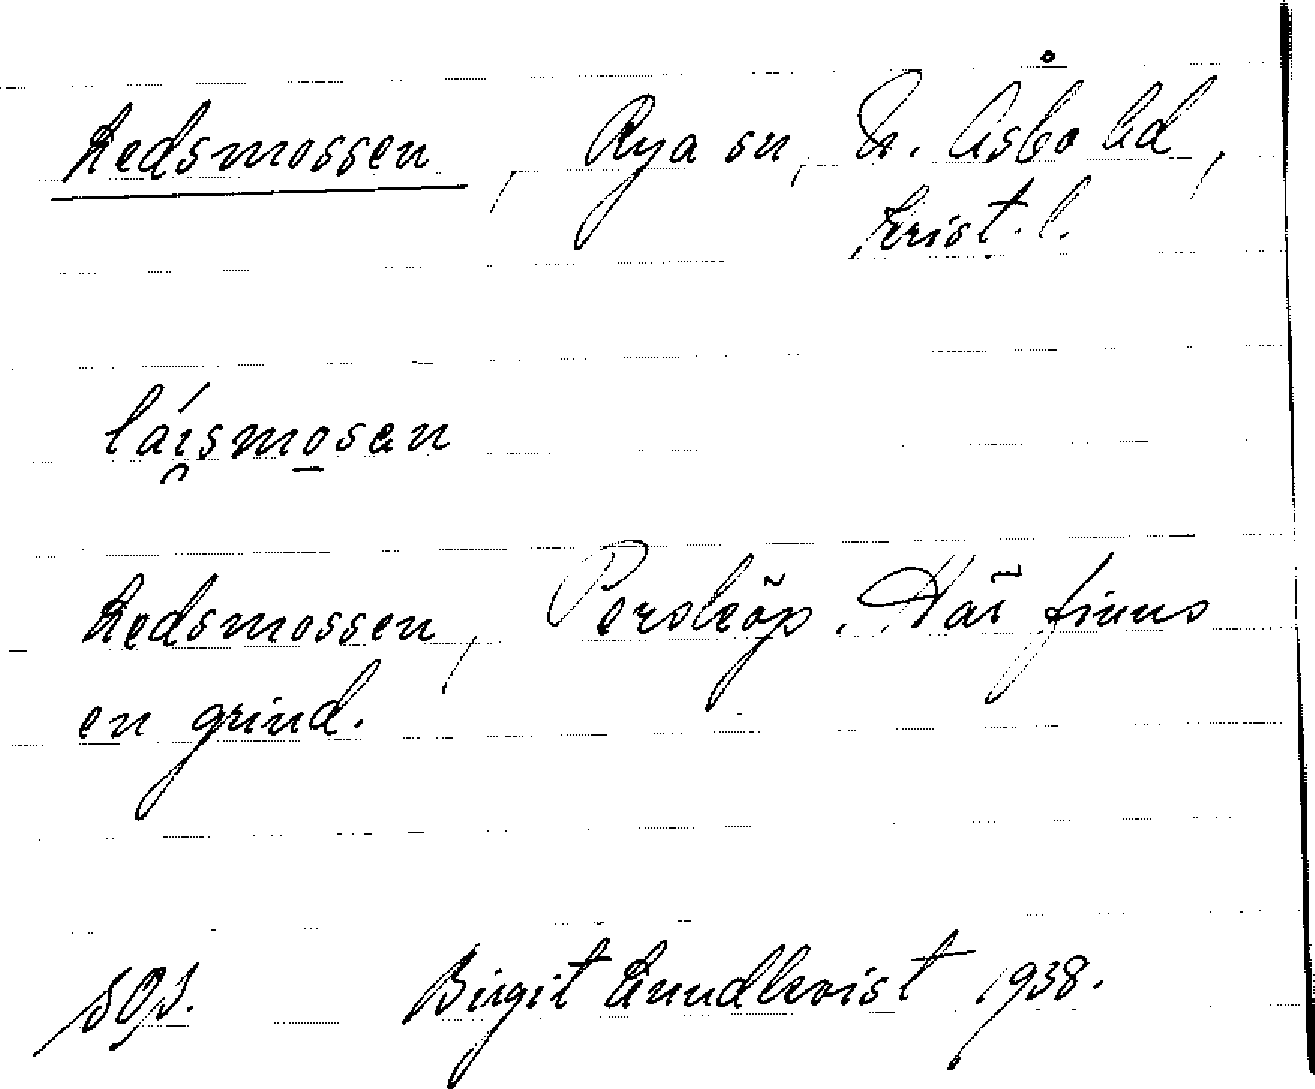 Ledsmossen, Rya sn, N. Åsbo hd,
Krist. l.
láı̯smo̲sən
Ledsmossen, Persköp. Här finns
en grind.
Birgit Lundkvist 1938.